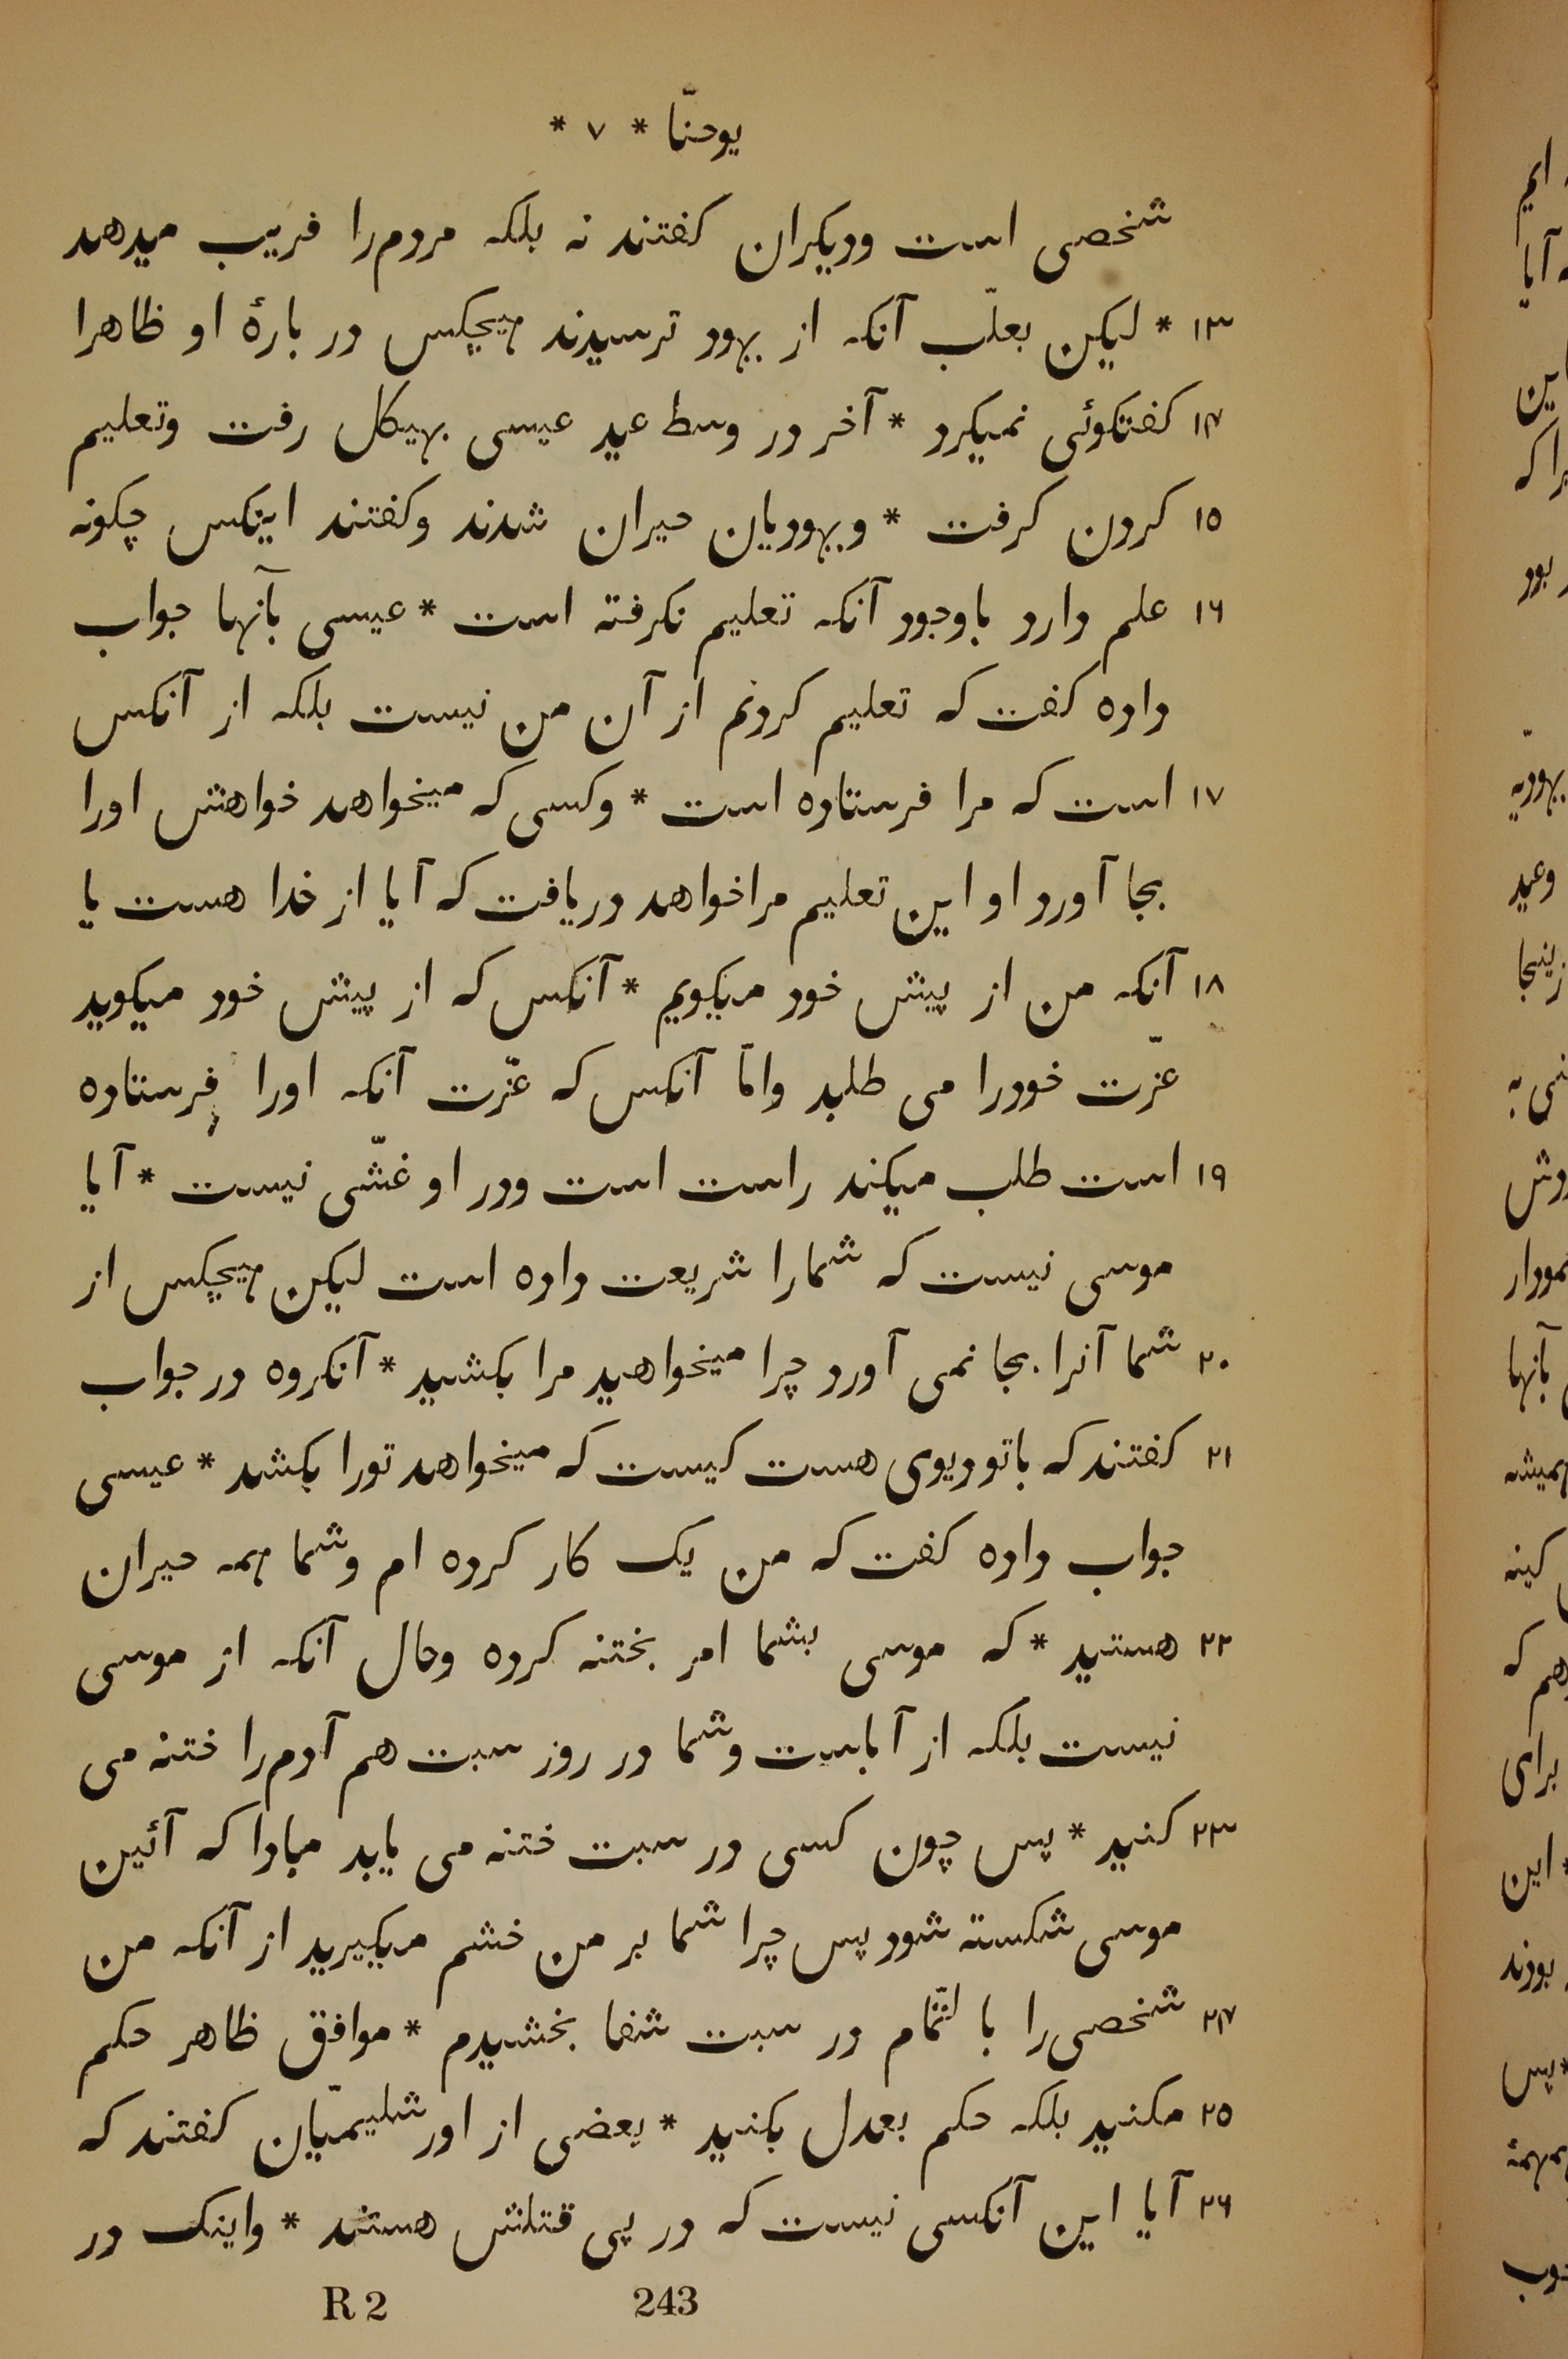 يوحنّا * ٧ *
شخصی است ودیکران کفتند نه بلکه مردم‌را فریب میدهد
١٣ * لیکن بعلّب آنکه از یهود ترسیدند هیچکس در بارهٔ او ظاهرا
١۴ کفتکوئی نمیکرد * آخر در وسط عید عیسی بهیکل رفت وتعلیم
١٥ کردن کرفت * ویهودیان حیران شدند وکفتند اینکس چکونه
١٦ علم دارد باوجود آنکه تعلیم نکرفته است * عیسی بآنها جواب
داده کفت که تعلیم کردنم از آن من نیست بلکه از آنکس
١٧ است که مرا فرستاده است * وکسی که میخواهد خواهش اورا
بجا آورد او این تعلیم مرا خواهد دریافت که آیا از خدا هست یا
١٨ آنکه من از پیش خود میکویم * آنکس که از پیش خود میکوید
عزّت خودرا می طلبد وامّا آنکس که عزّت آنکه اورا فرستاده
١٩ است طلب میکند راست است ودر او غشّی نیست * آیا
موسی نیست که شمارا شریعت داده است لیکن هیچکس از
٢٠ شما آنرا بجا نمی آورد چرا میخواهید مرا بکشید * آنکروه در جواب
٢١ کفتند که باتو دیوی هست کیست که میخواهد تورا بکشد * عیسی
جواب داده کفت که من یک کار کرده ام وشما همه حیران
٢٢ هستید * که موسی بشما امر بختنه کرده وحال آنکه از موسی
نیست بلکه از آباست وشما در روز سبت هم آدم‌را ختنه می
٢٣ کنید * پس چون کسی در سبت ختنه می یابد مبادا که آئین
موسی شکسته شود پس چرا شما بر من خشم میکیرید از آنکه من
٢۴ شخصی‌را با لتّمام در سبت شفا بخشیدم * موافق ظاهر حکم
٢٥ مکنید بلکه حکم بعدل بکنید * بعضی از اورشلیمیّان کفتند که
٢٦ آیا این آنکسی نیست که در پی قتلش هستند * واینک در
R 2 243